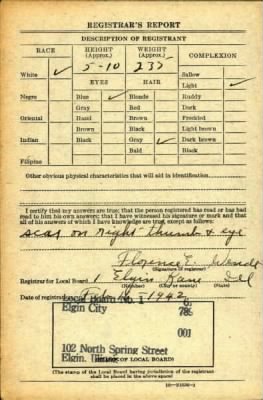 REGISTRAR'S REPORT
DESCRIPTION OF REGISTRANT
RACE HEIGHT (Approx.) WEIGHT (Approx.) COMPLEXION
White ✓ 5-10 237 Sallow
EYES HAIR Light ✓
Negro Blue ✓ Blonde Ruddy
Gray Red Dark
Oriental Hazel Brown Freckled
Brown Black Light brown
Indian Black Gray ✓ Dark brown
Bald Black
Filipino
Other obvious physical characteristics that will aid in identification
I certify that my answers are true; that the person registered has read or has had
read to him his own answers; that I have witnessed his signature or mark and that
all of his answers of which I have knowledge are true, except as follows:
scar on right thumb & eye
Florence E.
(Signature of registrar)
Registrar for Local Board 1 Elgin Kane Ill
(Number) (City or county) (State)
Date of registration 1942
Local Board No. 1
Elgin City 
001
102 North Spring Street
Elgin, Illinois
(STAMP OF LOCAL BOARD)
(The stamp of the Local Board having jurisdiction of the registrant
shall be placed in the above space)